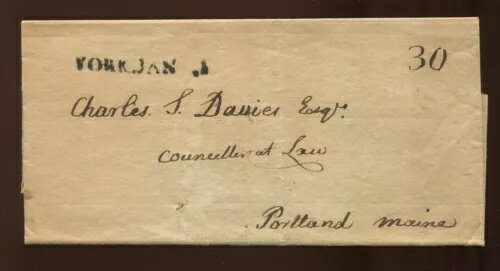 YORK JAN 1
30
Charles S. Davies Esqr.
Counceller at Law
Portland Maine